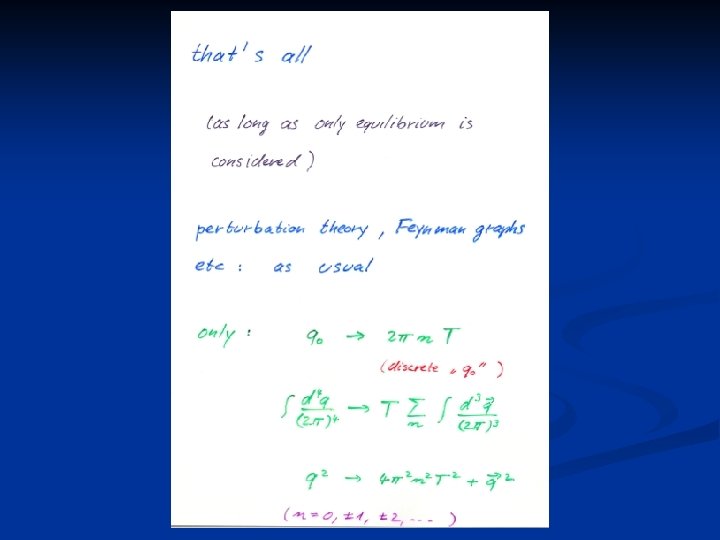 that's all
(as long as only equilibrium is
considered)
perturbation theory, Feynman graphs
etc: as usual
only: q₀ → 2πnT
(discrete „q₀")
∫ d⁴q/(2π)⁴ → T Σₙ ∫ d³q⃗/(2π)³
q² → 4π²n²T² + q⃗²
(n=0, ±1, ±2, ...)